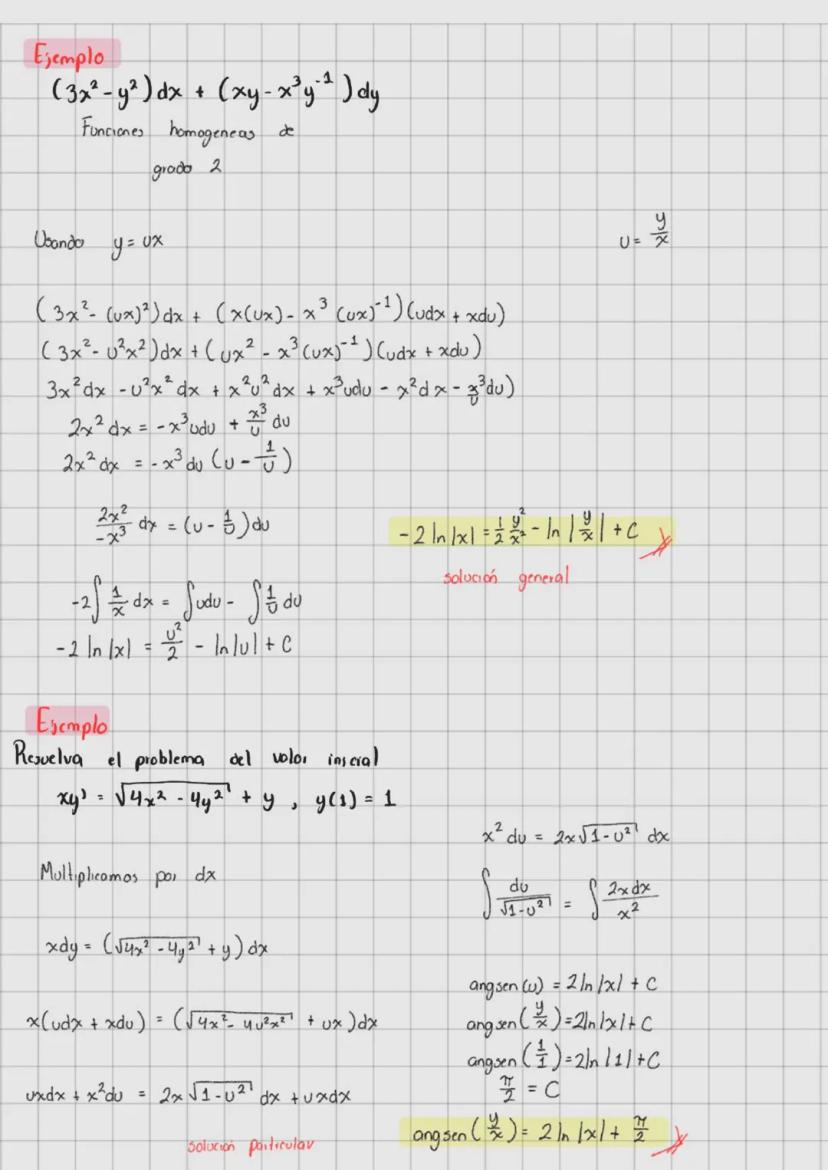 Ejemplo
(3x² - y²)dx + (xy - x³y⁻¹)dy
Funciones homogeneas de
grado 2
Usando y = ux
u = y/x
(3x² - (ux)²)dx + (x(ux) - x³(ux)⁻¹)(udx + xdu)
(3x² - u²x²)dx + (ux² - x³(ux)⁻¹)(udx + xdu)
3x²dx - u²x²dx + x²u²dx + x³udu - x²dx - x³/u du)
2x²dx = -x³udu + x³/u du
2x²dx = -x³du(u - 1/u)
2x²/-x³ dx = (u - 1/u)du
-2∫1/x dx = ∫udu - ∫1/u du
-2 ln|x| = u²/2 - ln|u| + C
-2 ln|x| = 1/2 y²/x² - ln|y/x| + C
solución general
Ejemplo
Resuelva el problema del valor inicial
xy' = √(4x² - 4y²) + y, y(1) = 1
Multiplicamos por dx
xdy = (√(4x² - 4y²) + y)dx
x(udx + xdu) = (√(4x² - 4u²x²) + ux)dx
uxdx + x²du = 2x√(1 - u²) dx + uxdx
x²du = 2x√(1 - u²) dx
∫du/√(1 - u²) = ∫2xdx/x²
angsen(u) = 2ln|x| + C
angsen(y/x) = 2ln|x| + C
angsen(1/1) = 2ln|1| + C
π/2 = C
solución particular
angsen(y/x) = 2ln|x| + π/2